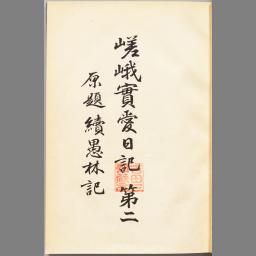 嵯峨實愛日記 第二
原題 續愚林記